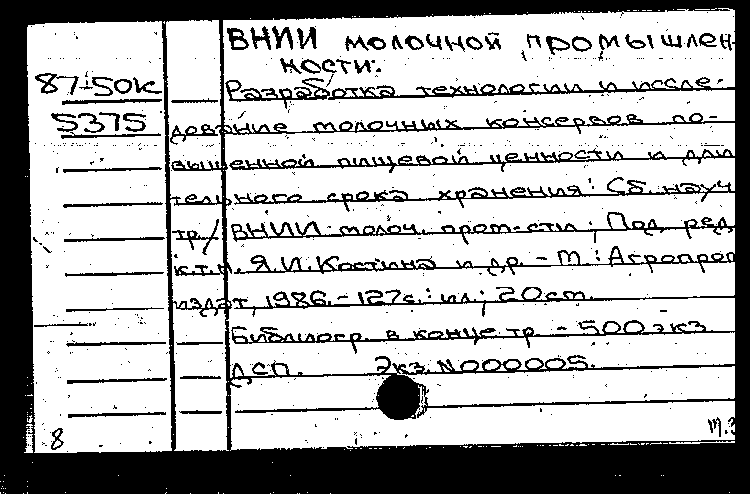 ВНИИ молочной промышлен-
ности.
87-50к
Разработка технологии и иссле-
5375
дование молочных консервов по-
вышенной пищевой ценности и дли
тельного срока хранения: Сб. науч
тр/ ВНИИ молоч. пром-сти; Под ред
к.т.н. Я.И. Костина и др. - М.: Агропром
издат, 1986. - 127с.: ил; 20см.
Библиогр. в конце тр - 500 экз
ДСП. Экз. N000005.
8